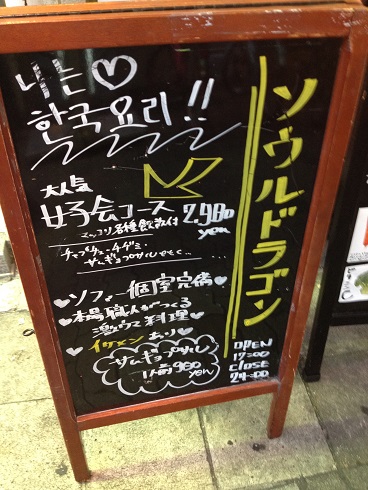 나는♡
한국요리!!
ソウルドラゴン
大人気
女子会コース 2.980yen
マッコリ各種飲放付
チャプチェ・チヂミ・
サムギョプサルetc...
♥ソファー個室完備♥
♥本場職人がつくる
激ウマ料理♥
♥イケメンあり♥
サムギョプサル
1人前980yen
OPEN
17:00
CLOSE
24:00